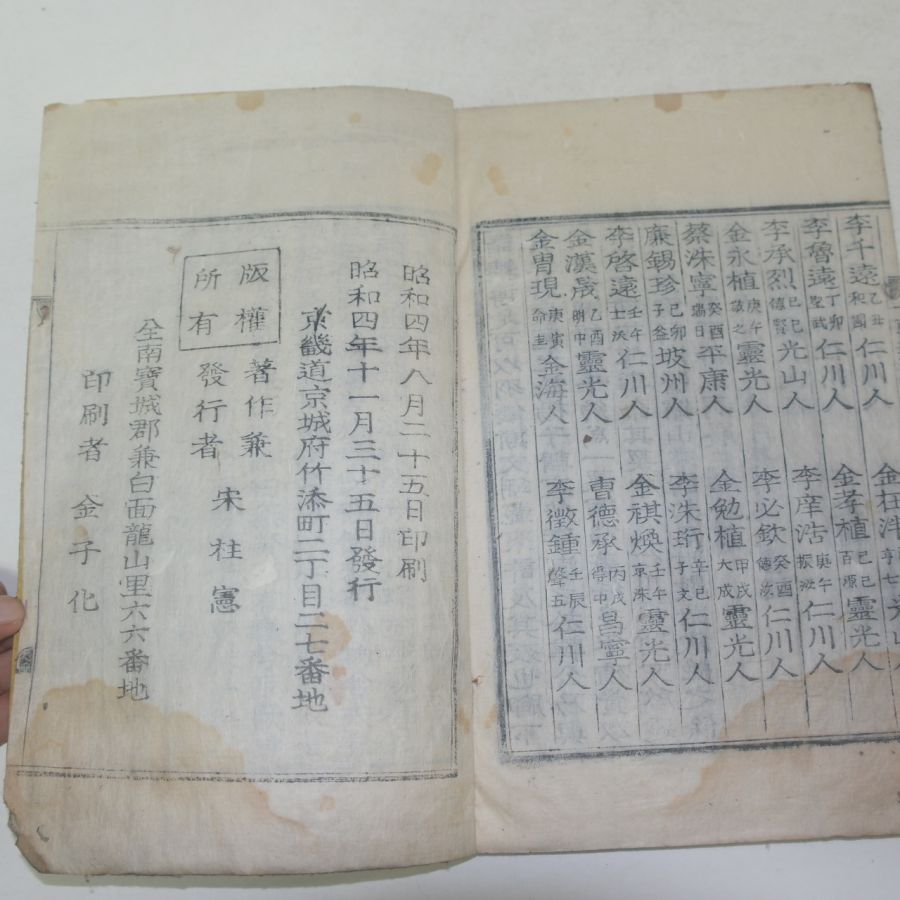 李千遠 乙丑 和國 仁川人 金在洙
李魯遠 丁卯 聖武 仁川人 金孝植 己巳 百源 靈光人
李承烈 己巳 德賢 光山人 李庠浩 庚午 振汝 仁川人
金永植 庚午 敬之 靈光人 李必欽 癸酉 德汝 仁川人
蔡洙寧 癸酉 瑞日 平康人 金勉植 甲戌 大成 靈光人
廉錫珍 己卯 子益 坡州人 李洙珩 辛巳 子文 仁川人
李啓遠 壬午 士沃 仁川人 金祺煥 壬午 京洙 靈光人
金漢晟 乙酉 明中 靈光人 曺德承 丙戌 得中 昌寧人
金胄現 庚寅 命圭 金海人 李徵鍾 壬辰 聲五 仁川人
昭和四年八月二十五日印刷
昭和四年十一月三十五日發行
京畿道京城府竹添町二丁目二七番地
版權所有
著作兼發行者 宋柱憲
全南寶城郡兼白面龍山里六六番地
印刷者 金子化